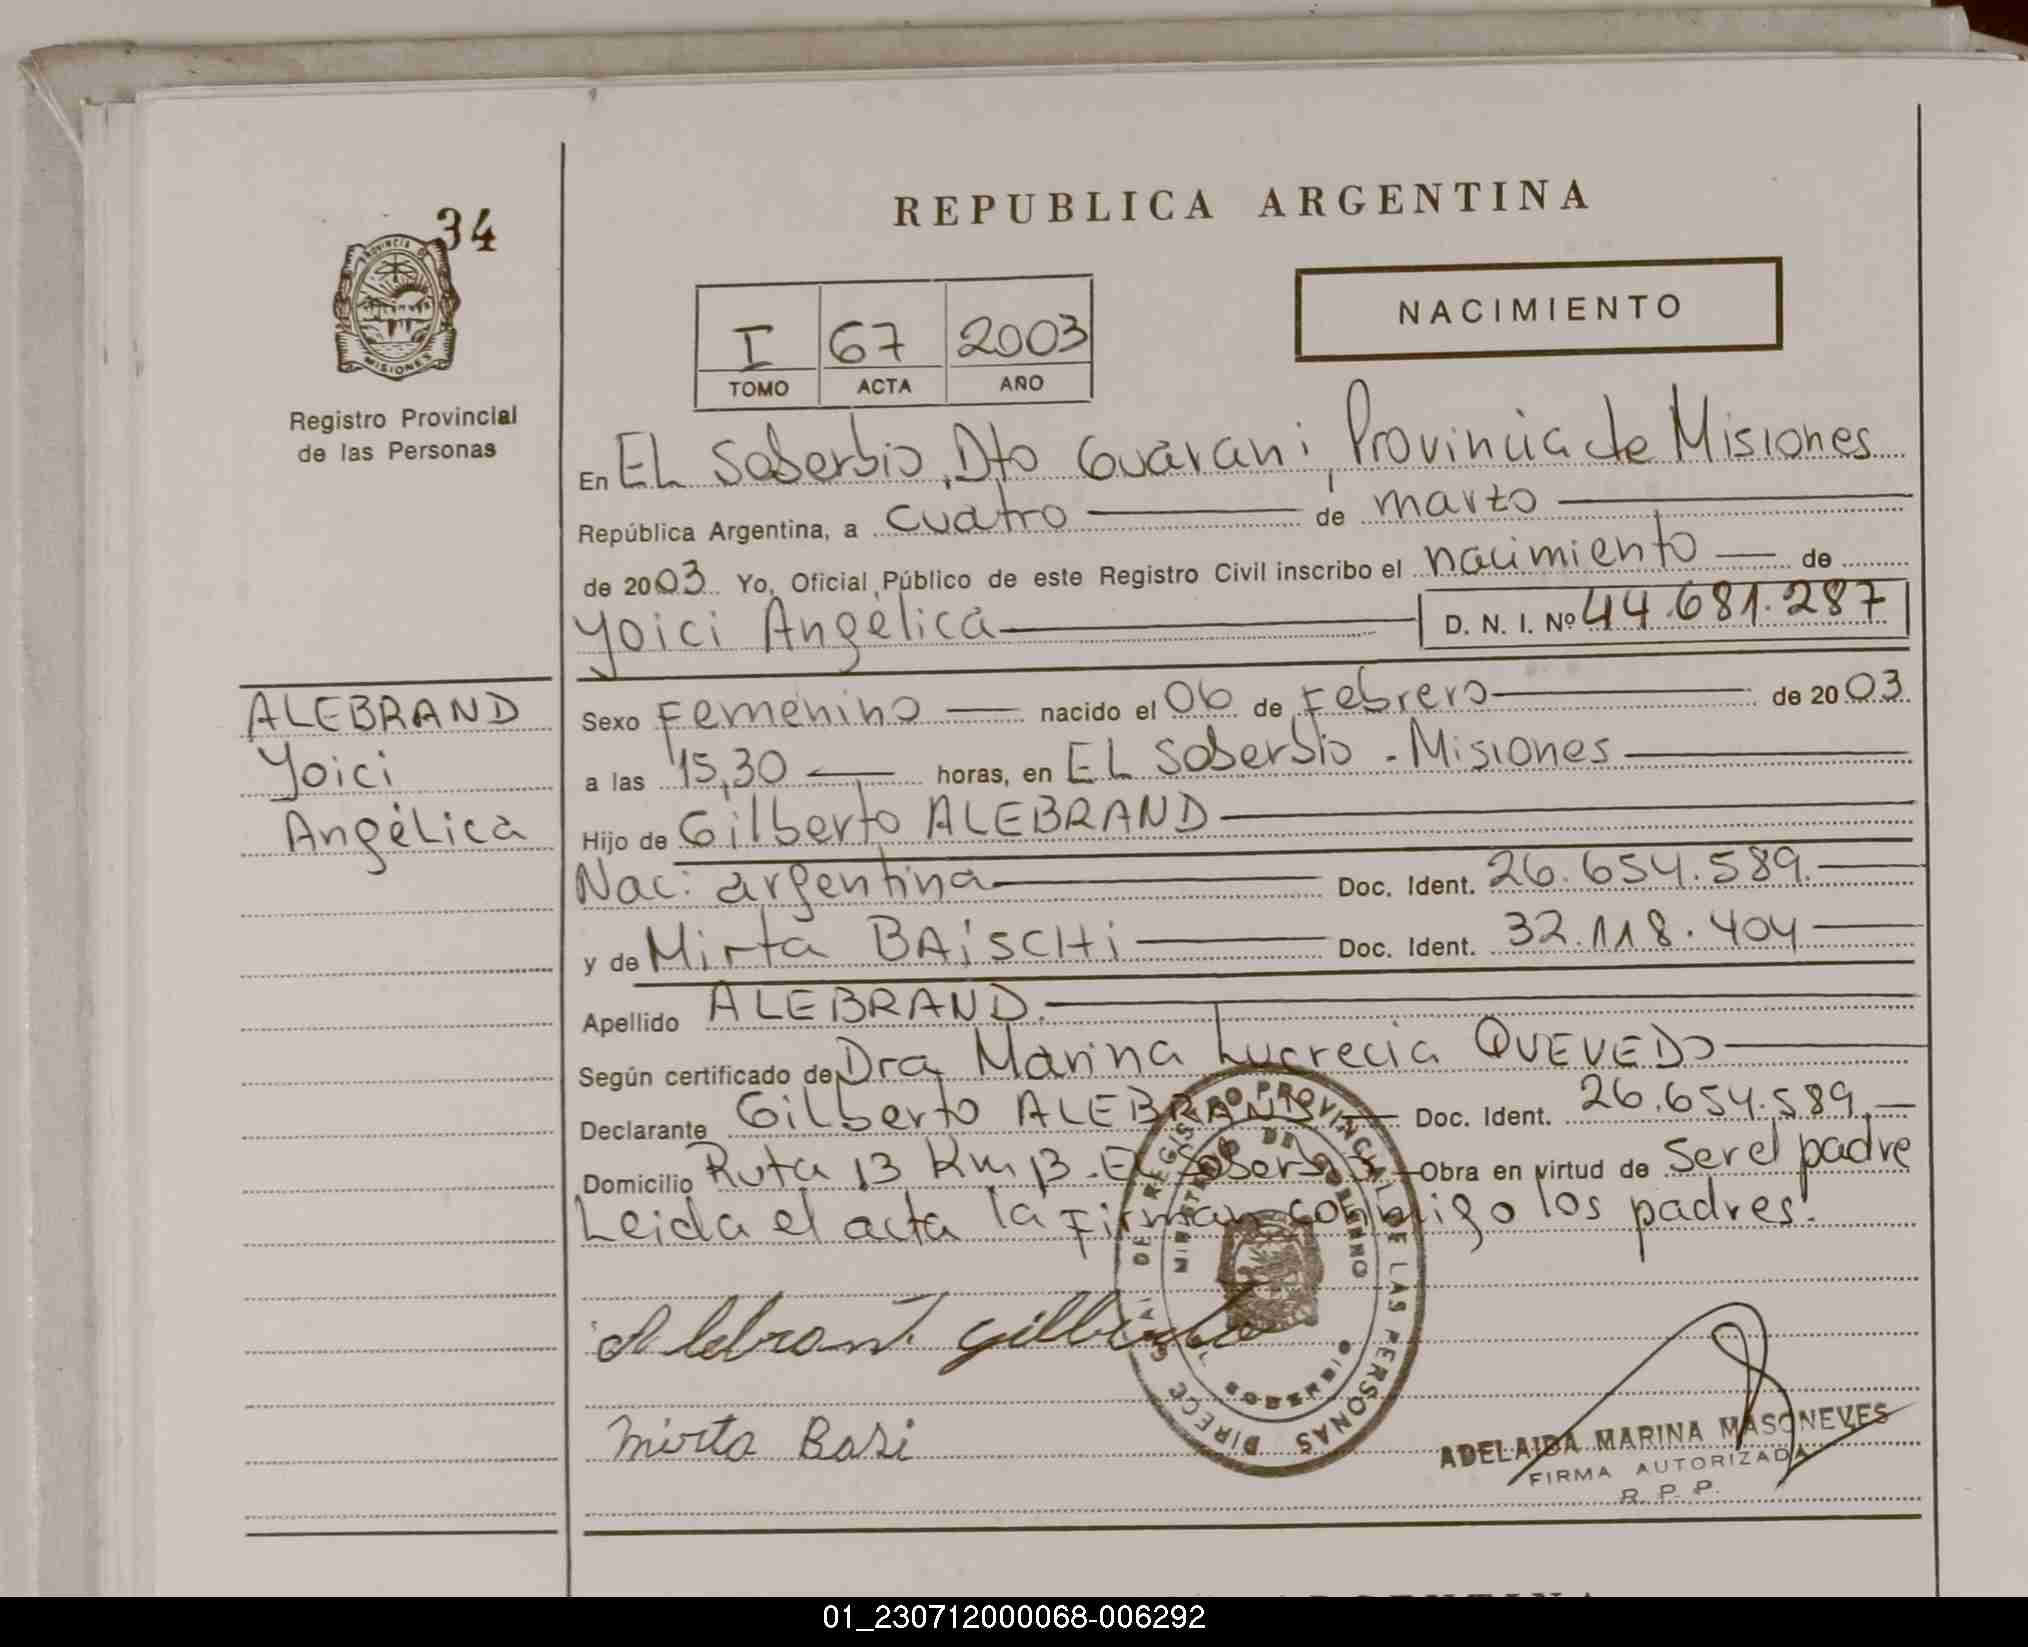 34
PROVINCIA DE
MISIONES
Registro Provincial
de las Personas
REPUBLICA ARGENTINA
I 67 2003
TOMO ACTA AÑO
NACIMIENTO
En EL Soberbio, Dto Guarani, Provincia de Misiones
República Argentina, a cuatro de marzo
de 2003 Yo, Oficial Público de este Registro Civil inscribo el nacimiento de
Yoici Angélica D. N. I. Nº 44.681.287
ALEBRAND
Yoici
Angélica
Sexo Femenino nacido el 06 de Febrero de 2003
a las 15,30 horas, en EL Soberbio - Misiones
Hijo de Gilberto ALEBRAND
Nac: argentina Doc. Ident. 26.654.589.
y de Mirta BAiSCHi Doc. Ident. 32.118.404
Apellido ALEBRAND.
Según certificado de Dra Marina Lucrecia QUEVEDO
Declarante Gilberto ALEBRAND Doc. Ident. 26.654.589.
Domicilio Ruta 13 Km 13 - El Soberbio Obra en virtud de Ser el padre
Leida el acta la Firman conmigo los padres.
Alebrant gilberto
Mirta Basi
DIRECC GRAL DE REGISTRO PROVINCIAL DE LAS PERSONAS
MINISTERIO DE GOBIERNO
MISIONES
ADELAIDA MARINA MASONEVES
FIRMA AUTORIZADA
R. P. P.
01_230712000068-006292